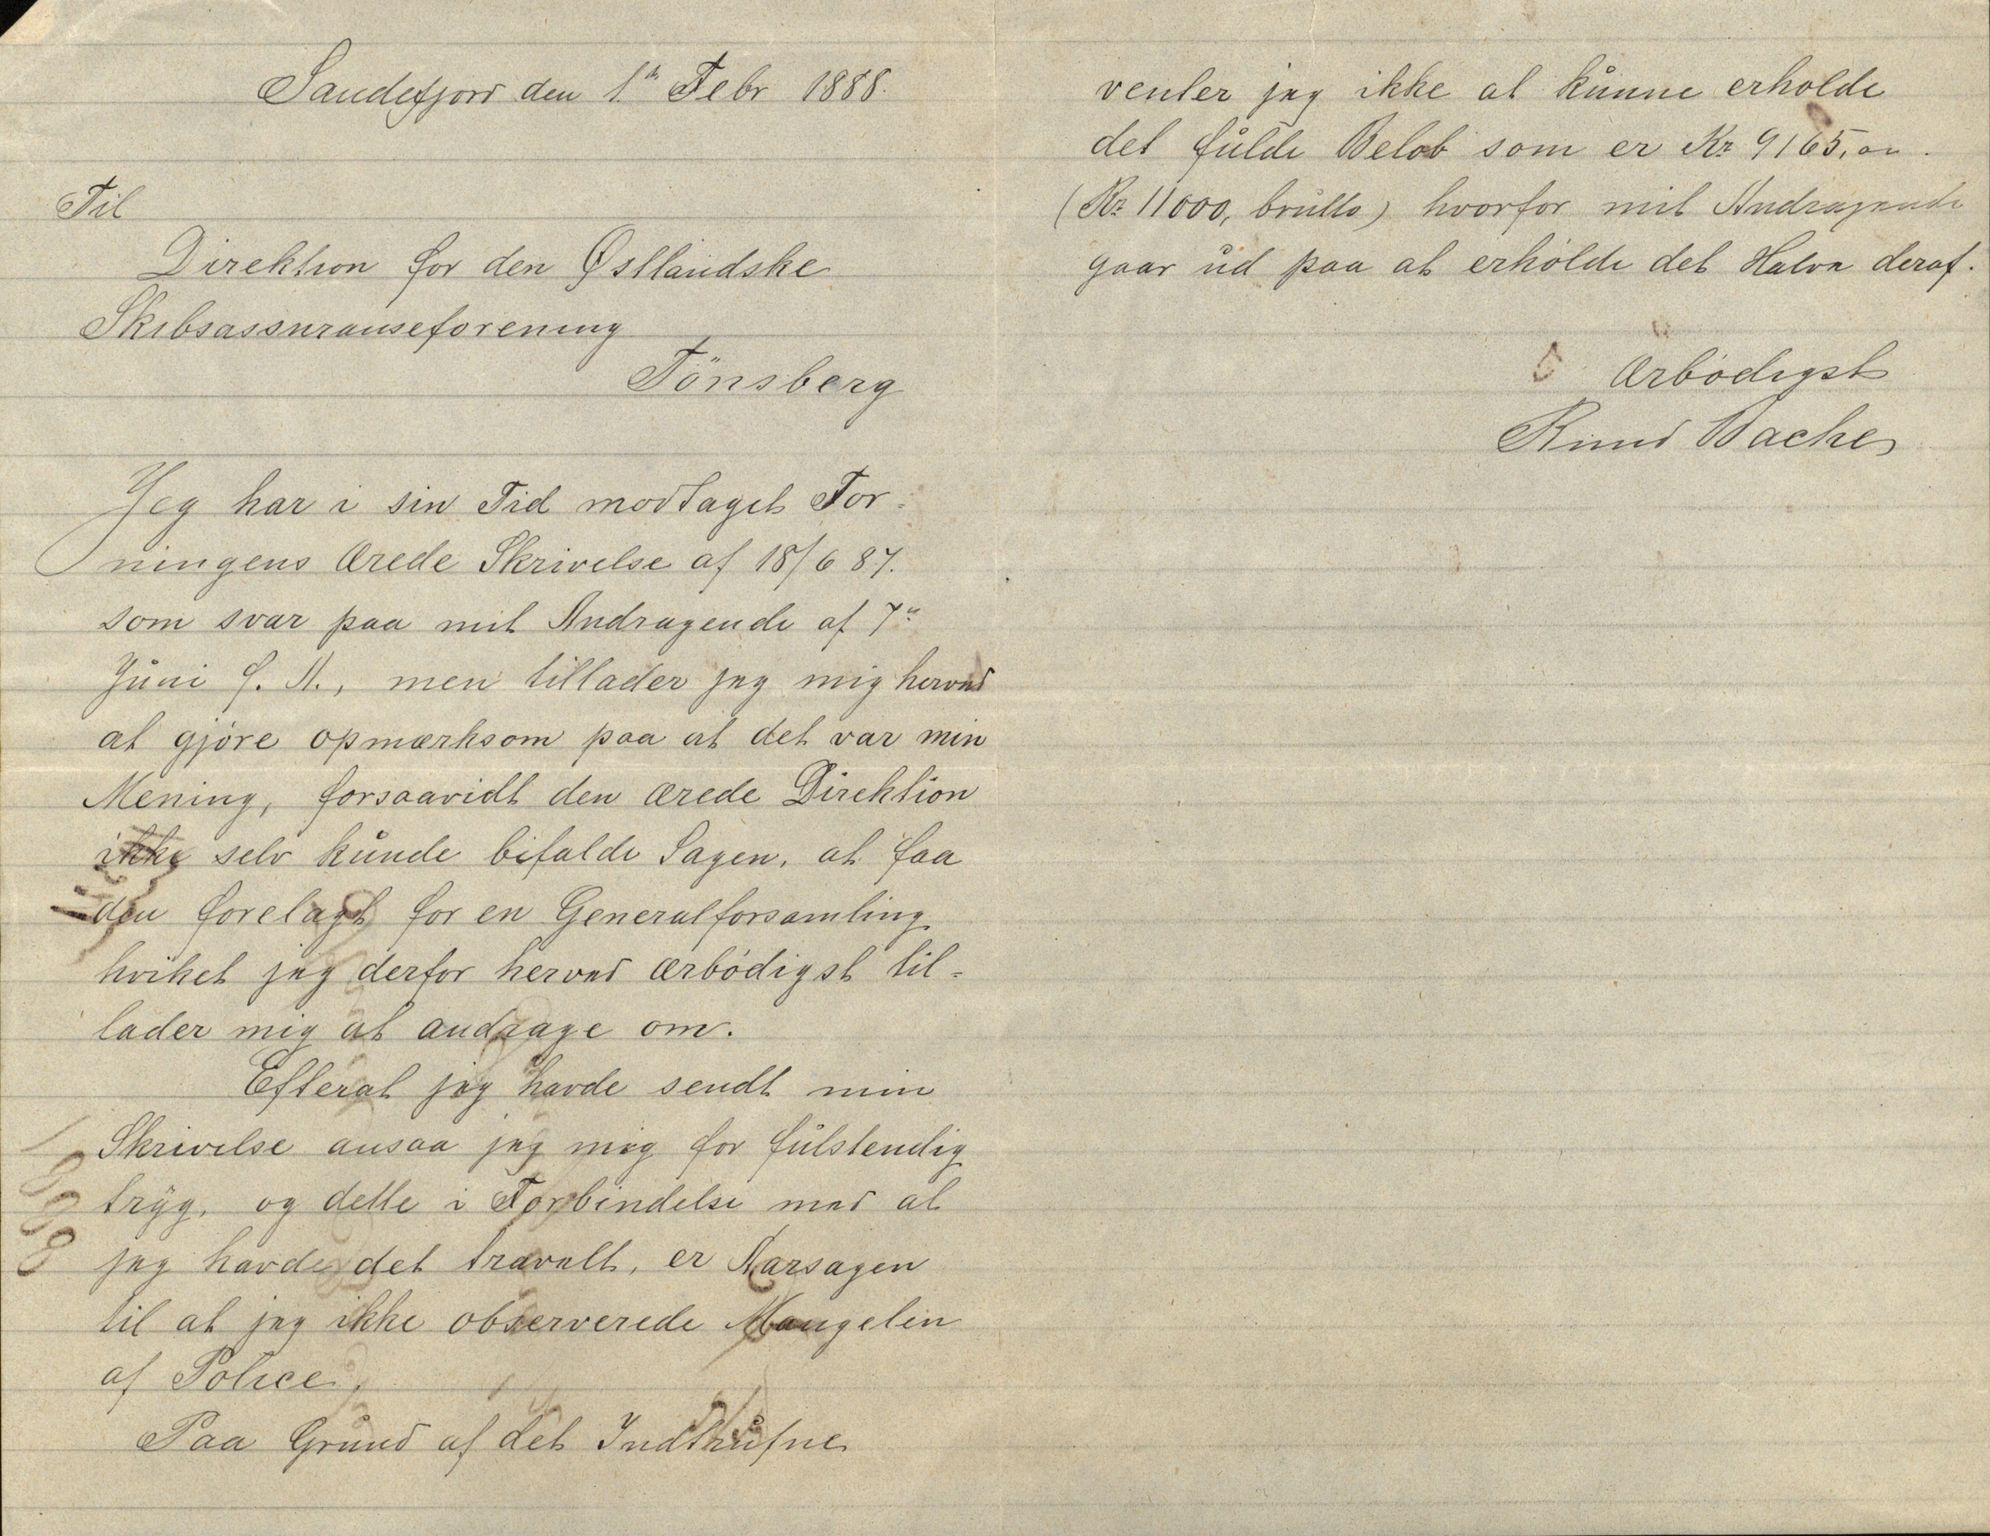 Sandefjord den 1ste Febr 1888.
Til
Direktion for den Østlandske
Skibsassuranseforening
Tönsberg
Jeg har i sin Tid modtaget For-
ningens ærede Skrivelse af 18/6 87.
som svar paa mit Andragende af 7de
Juni f. A., men tillader jeg mig herved
at gjöre opmærksom paa at det var min
Mening, forsaavidt den ærede Direktion
ikke selv kunde bifalde Sagen, at faa
den forelagt for en Generalforsamling
hvilket jeg derfor herved ærbödigst til-
lader mig at andrage om.
Efterat jeg havde sendt min
Skrivelse ansaa jeg mig for fulstendig
tryg, og dette i Forbindelse med at
jeg havde det travelt, er Aarsagen
til at jeg ikke observerede Mangelen
af Police.
Paa Grund af det Indtrufne
venter jeg ikke at kunne erholde
det fulde Belöb som er Kr 9165,00.
(Kr 11000, brutto) hvorfor mit Andragende
gaar ud paa at erholde det Halve deraf.
Ærbödigst
Knud Bache